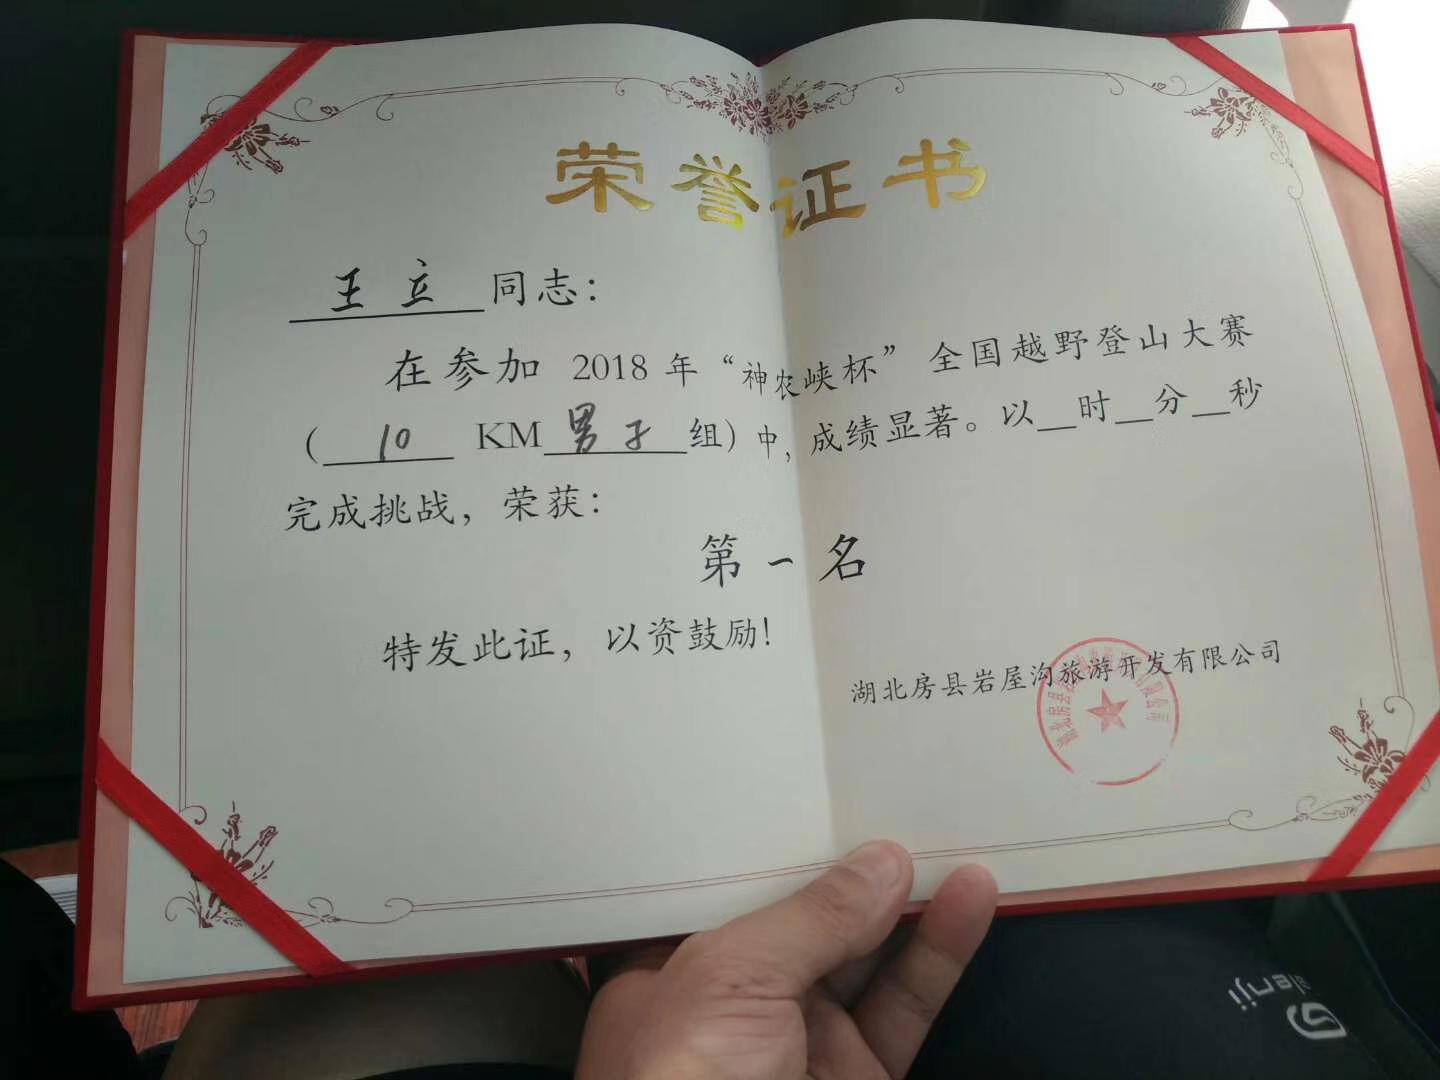 荣誉证书
王立同志：
在参加 2018 年“神农峡杯”全国越野登山大赛
（10 KM男子组）中，成绩显著。以__时__分__秒
完成挑战，荣获：
第一名
特发此证，以资鼓励！
湖北房县岩屋沟旅游开发有限公司